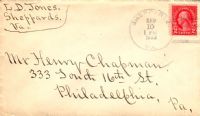 E. D. Jones.
Sheppards,
Va.
SEP
10
1 PM
VA.
Mr Henry Chapman
333 South 16th St.
Philadelphia,
Pa.